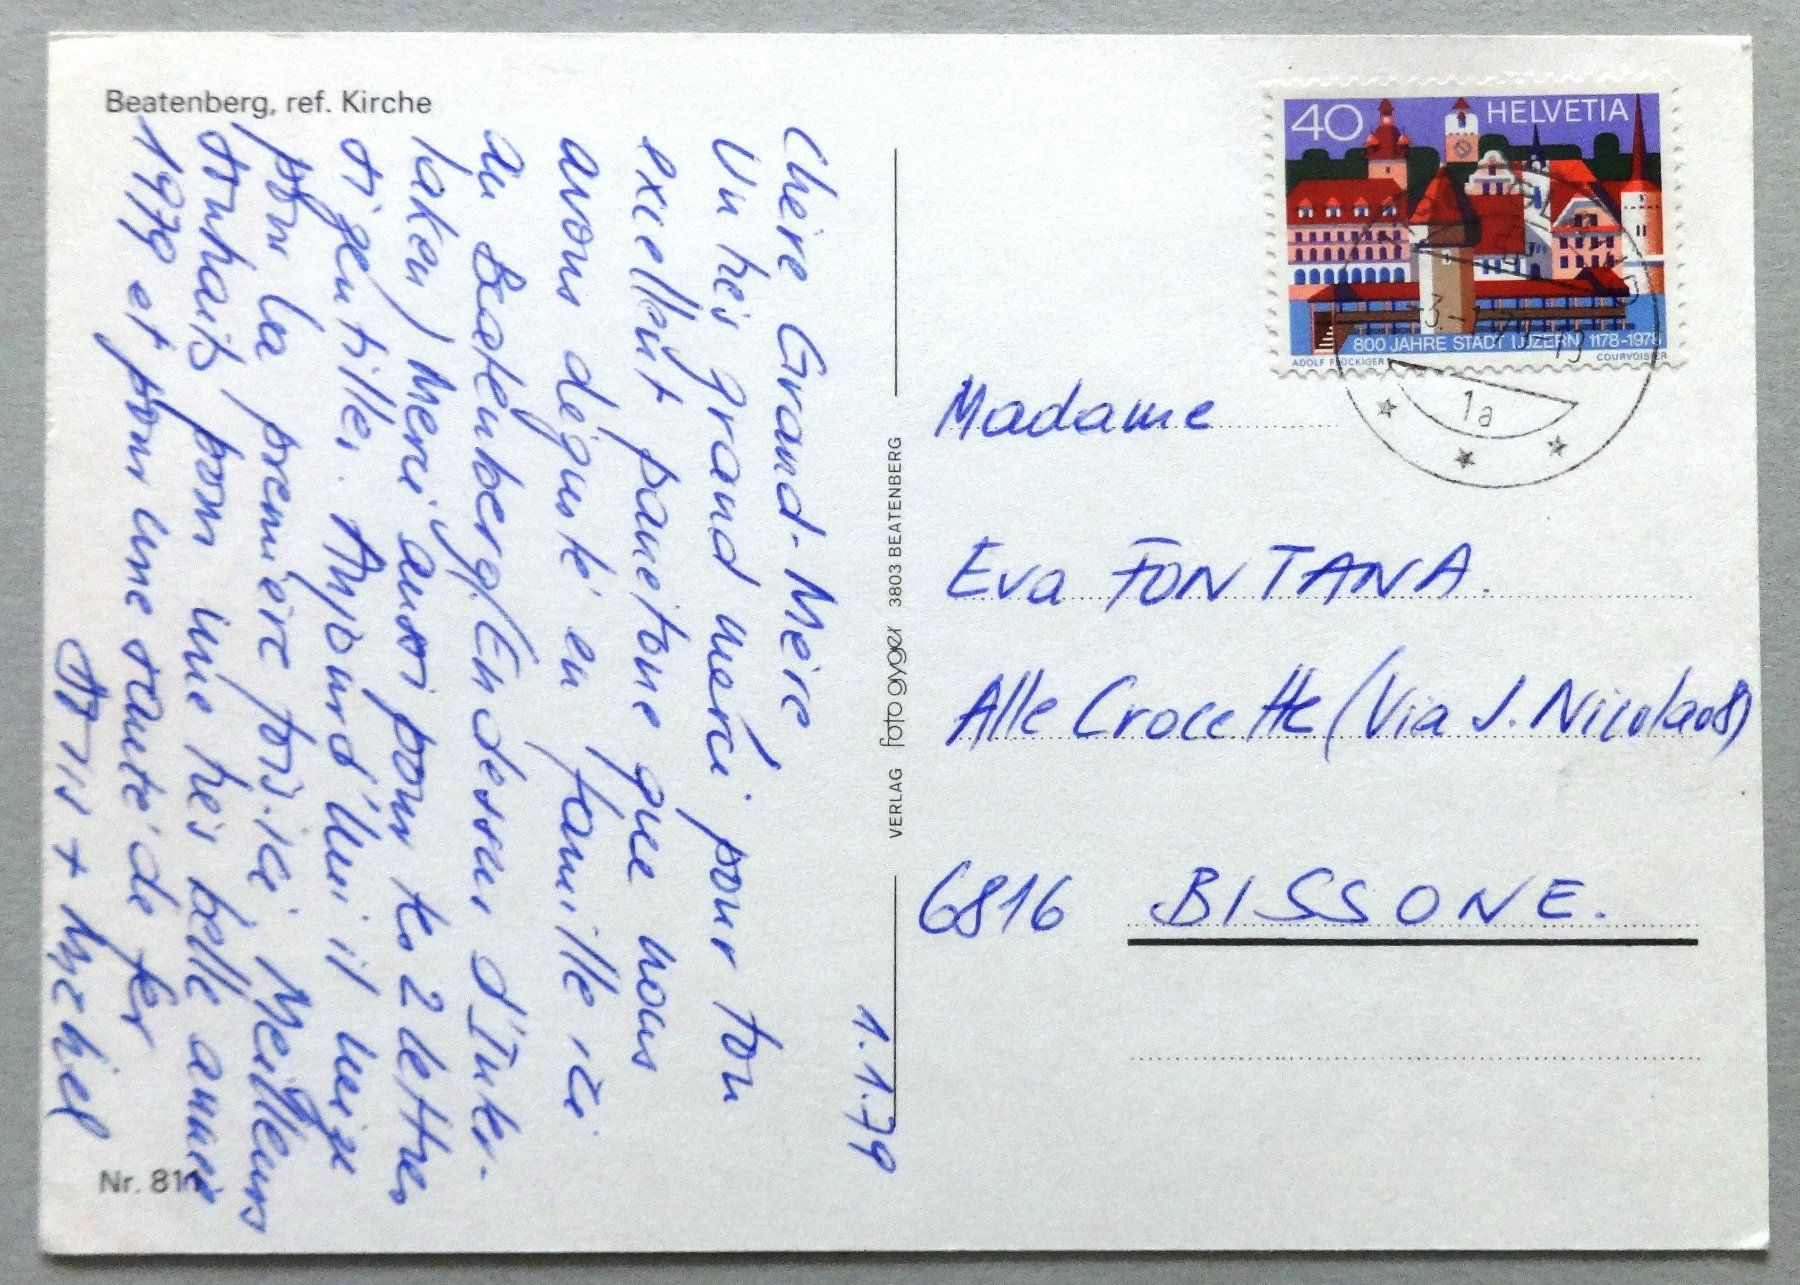 Beatenberg, ref. Kirche
1.1.79
Chère Grand-Mère
Un très grand merci pour ton
excellent panetone que nous
avons dégusté en famille ici
au Beatenberg (En dessus d'Inter-
laken) Merci aussi pour tes 2 lettres
si gentilles. Aujourd'hui il neige
pour la première fois ici. Meilleurs
souhaits pour une très belle année
1979 et pour une santé de fer
+ Michel
Nr. 811
VERLAG foto gyger 3803 BEATENBERG
40 HELVETIA
800 JAHRE STADT LUZERN 1178-1978
ADOLF FLÜCKIGER COURVOISIER
1a
Madame
Eva FONTANA.
Alle Crocette (Via J. Nicolaos)
6816 BISSONE.